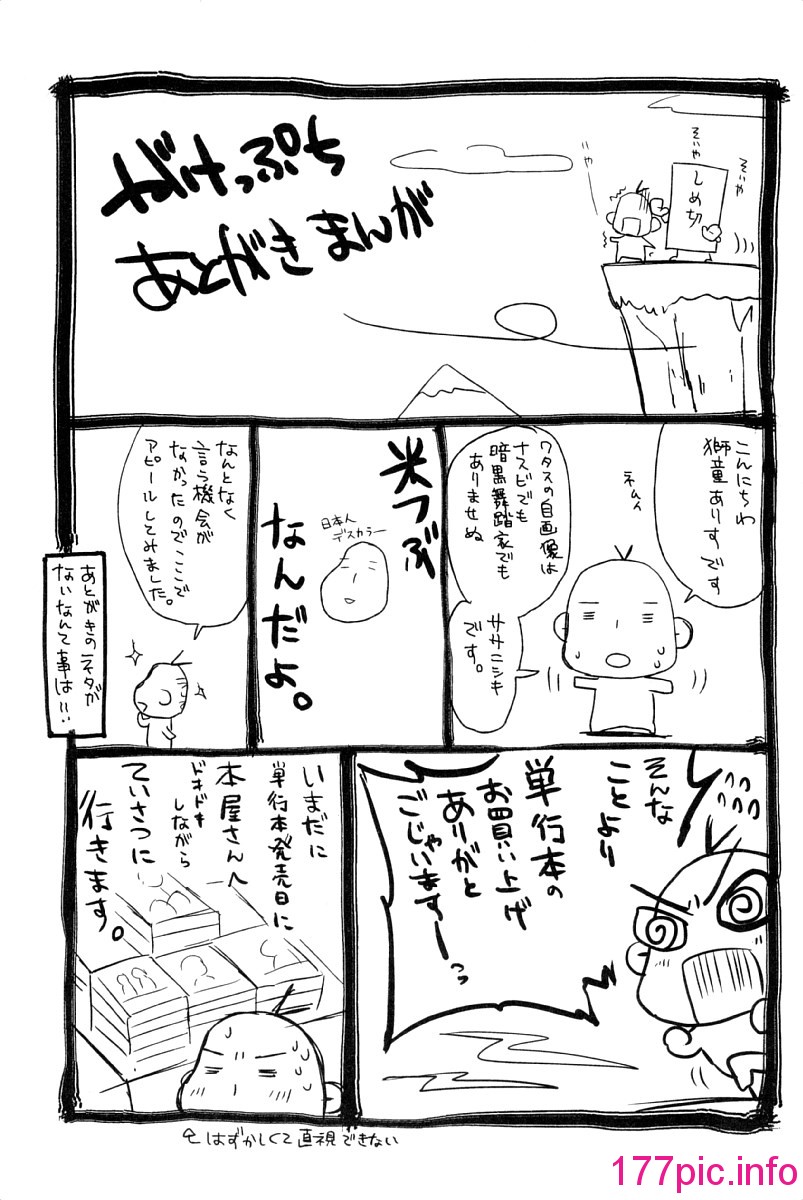 がけっぷち
あとがきまんが
そいや
そいや
しめ切
こんにちわ
獅童ありすです
ネムイ
ワタスの自画像は
ナスビでも
暗黒舞踏家でも
ありませぬ
ササニシキ
です。
米つぶ
なんだよ。
日本人
デスカラー
なんとなく
言う機会が
なかったのでここで
アピールしてみました。
あとがきのネタが
ないなんて事は!!
そんな
ことより
単行本の
お買い上げ
ありがと
ごじゃ
います——っっ
いまだに
単行本発売日に
本屋さんへ
ドキドキ
しながら
ていさつに
行きます。
はずかしくて直視できない
177pic.info